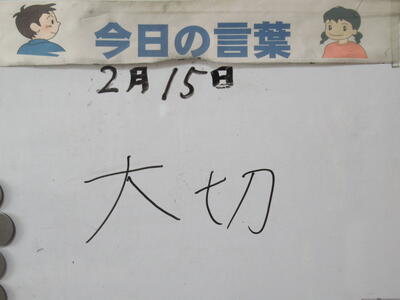 今日の言葉
2月15日
大切